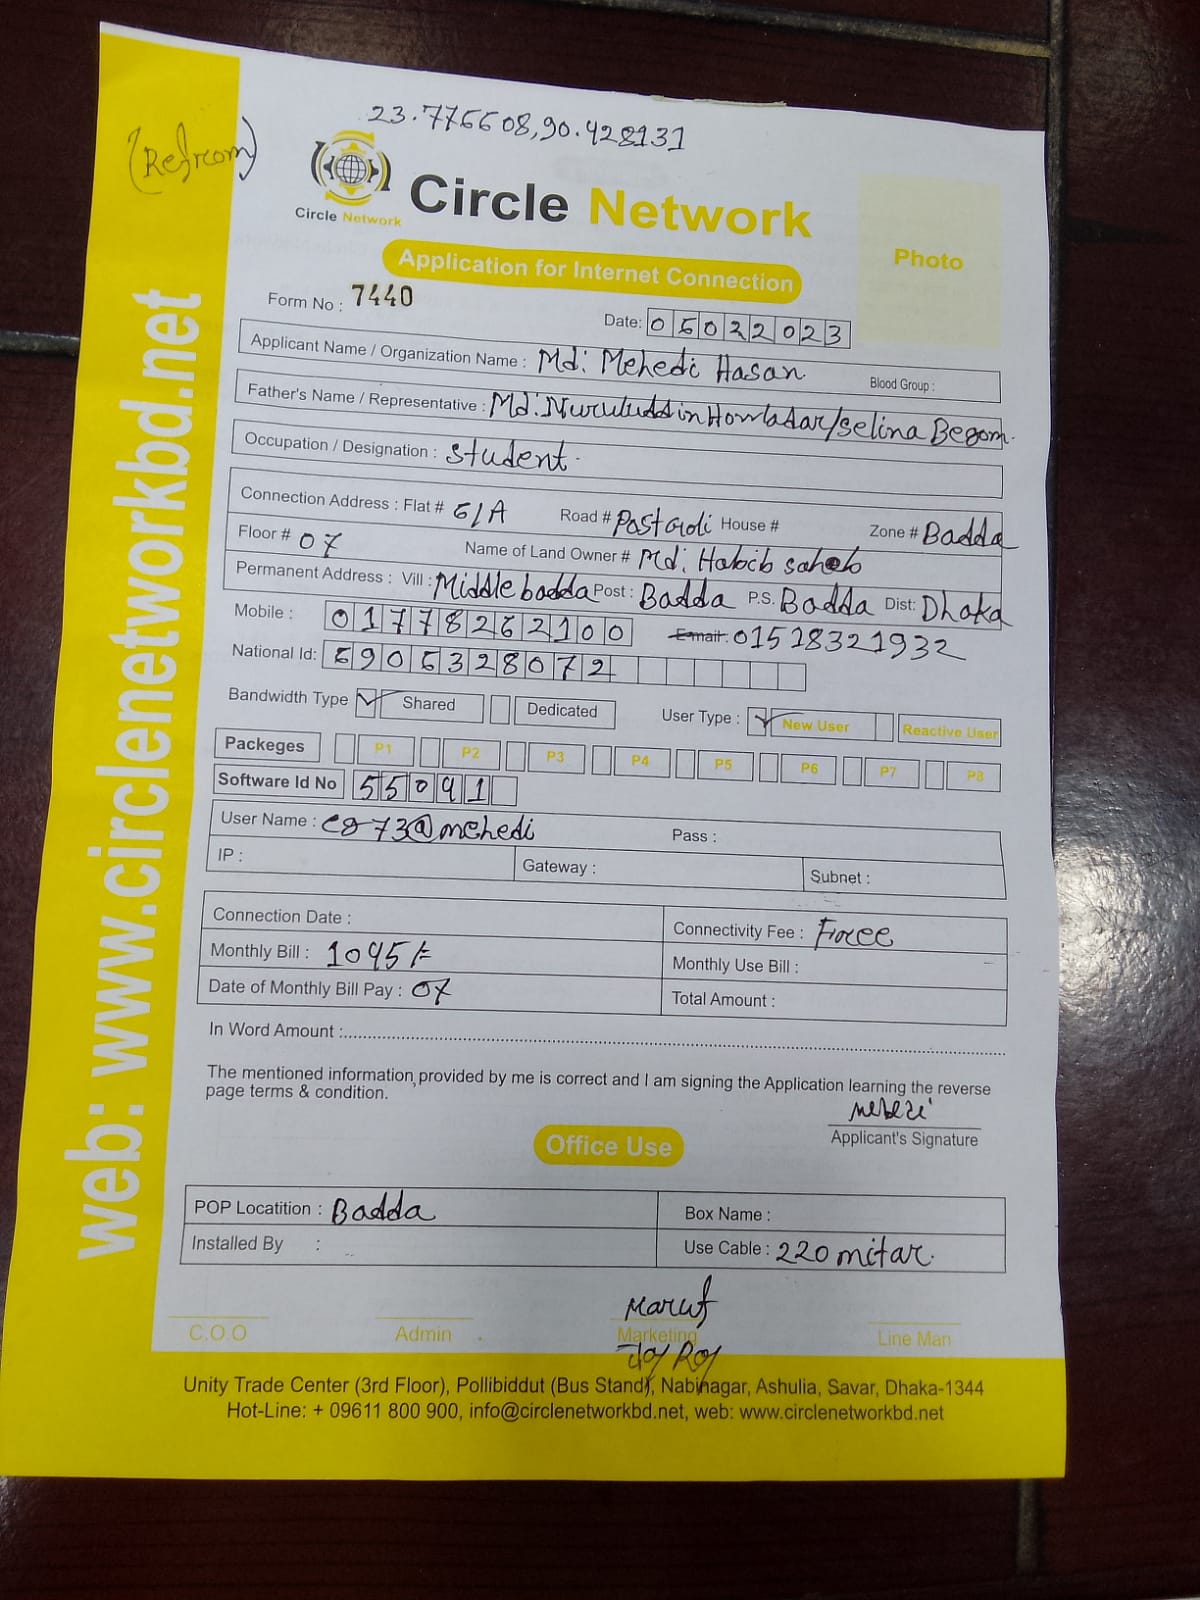 23.776608,90.428131
(Refrom)
Circle Network
Circle Network
Photo
Application for Internet Connection
Form No : 7440
Date: 05022023
Applicant Name / Organization Name : Md: Mehedi Hasan Blood Group :
Father's Name / Representative : Md: Nuruluddin Howladar/selina Begom.
Occupation / Designation : student.
Connection Address : Flat # 6/A Road # Post Goli House # Zone # Badda
Floor # 07 Name of Land Owner # Md. Habib saheb
Permanent Address : Vill : Middle badda Post : Badda P.S. Badda Dist: Dhaka
Mobile : 01778262100 Email: 01518321932
National Id: 6906328072
Bandwidth Type Shared Dedicated User Type : New User Reactive User
Packeges P1 P2 P3 P4 P5 P6 P7 P8
Software Id No 55091
User Name : c873@mehedi Pass :
IP : Gateway : Subnet :
Connection Date : Connectivity Fee : Free
Monthly Bill : 1095/= Monthly Use Bill :
Date of Monthly Bill Pay : 07 Total Amount :
In Word Amount :
The mentioned information provided by me is correct and I am signing the Application learning the reverse
page terms & condition.
Applicant's Signature
Office Use
POP Locatition : Badda Box Name :
Installed By : Use Cable : 220 mitar.
Maruf
C.O.O Admin Marketing Line Man
Joy Roy
Unity Trade Center (3rd Floor), Pollibiddut (Bus Stand), Nabinagar, Ashulia, Savar, Dhaka-1344
Hot-Line: + 09611 800 900, info@circlenetworkbd.net, web: www.circlenetworkbd.net
web: www.circlenetworkbd.net